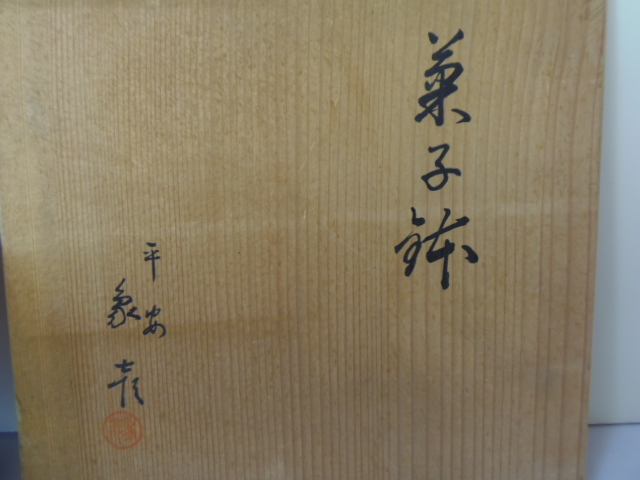 菓子鉢
平安
象彦